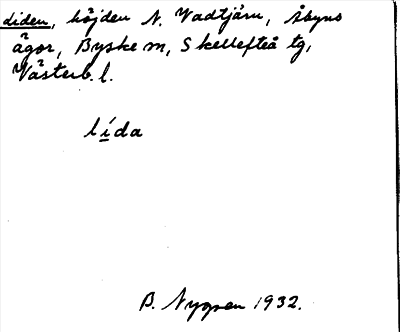 diden, höjden N. Vadtjärn, Åbyns
ägor, Byske m, Skellefteå tg,
Västerb. l.
lída
B. Nygren 1932.